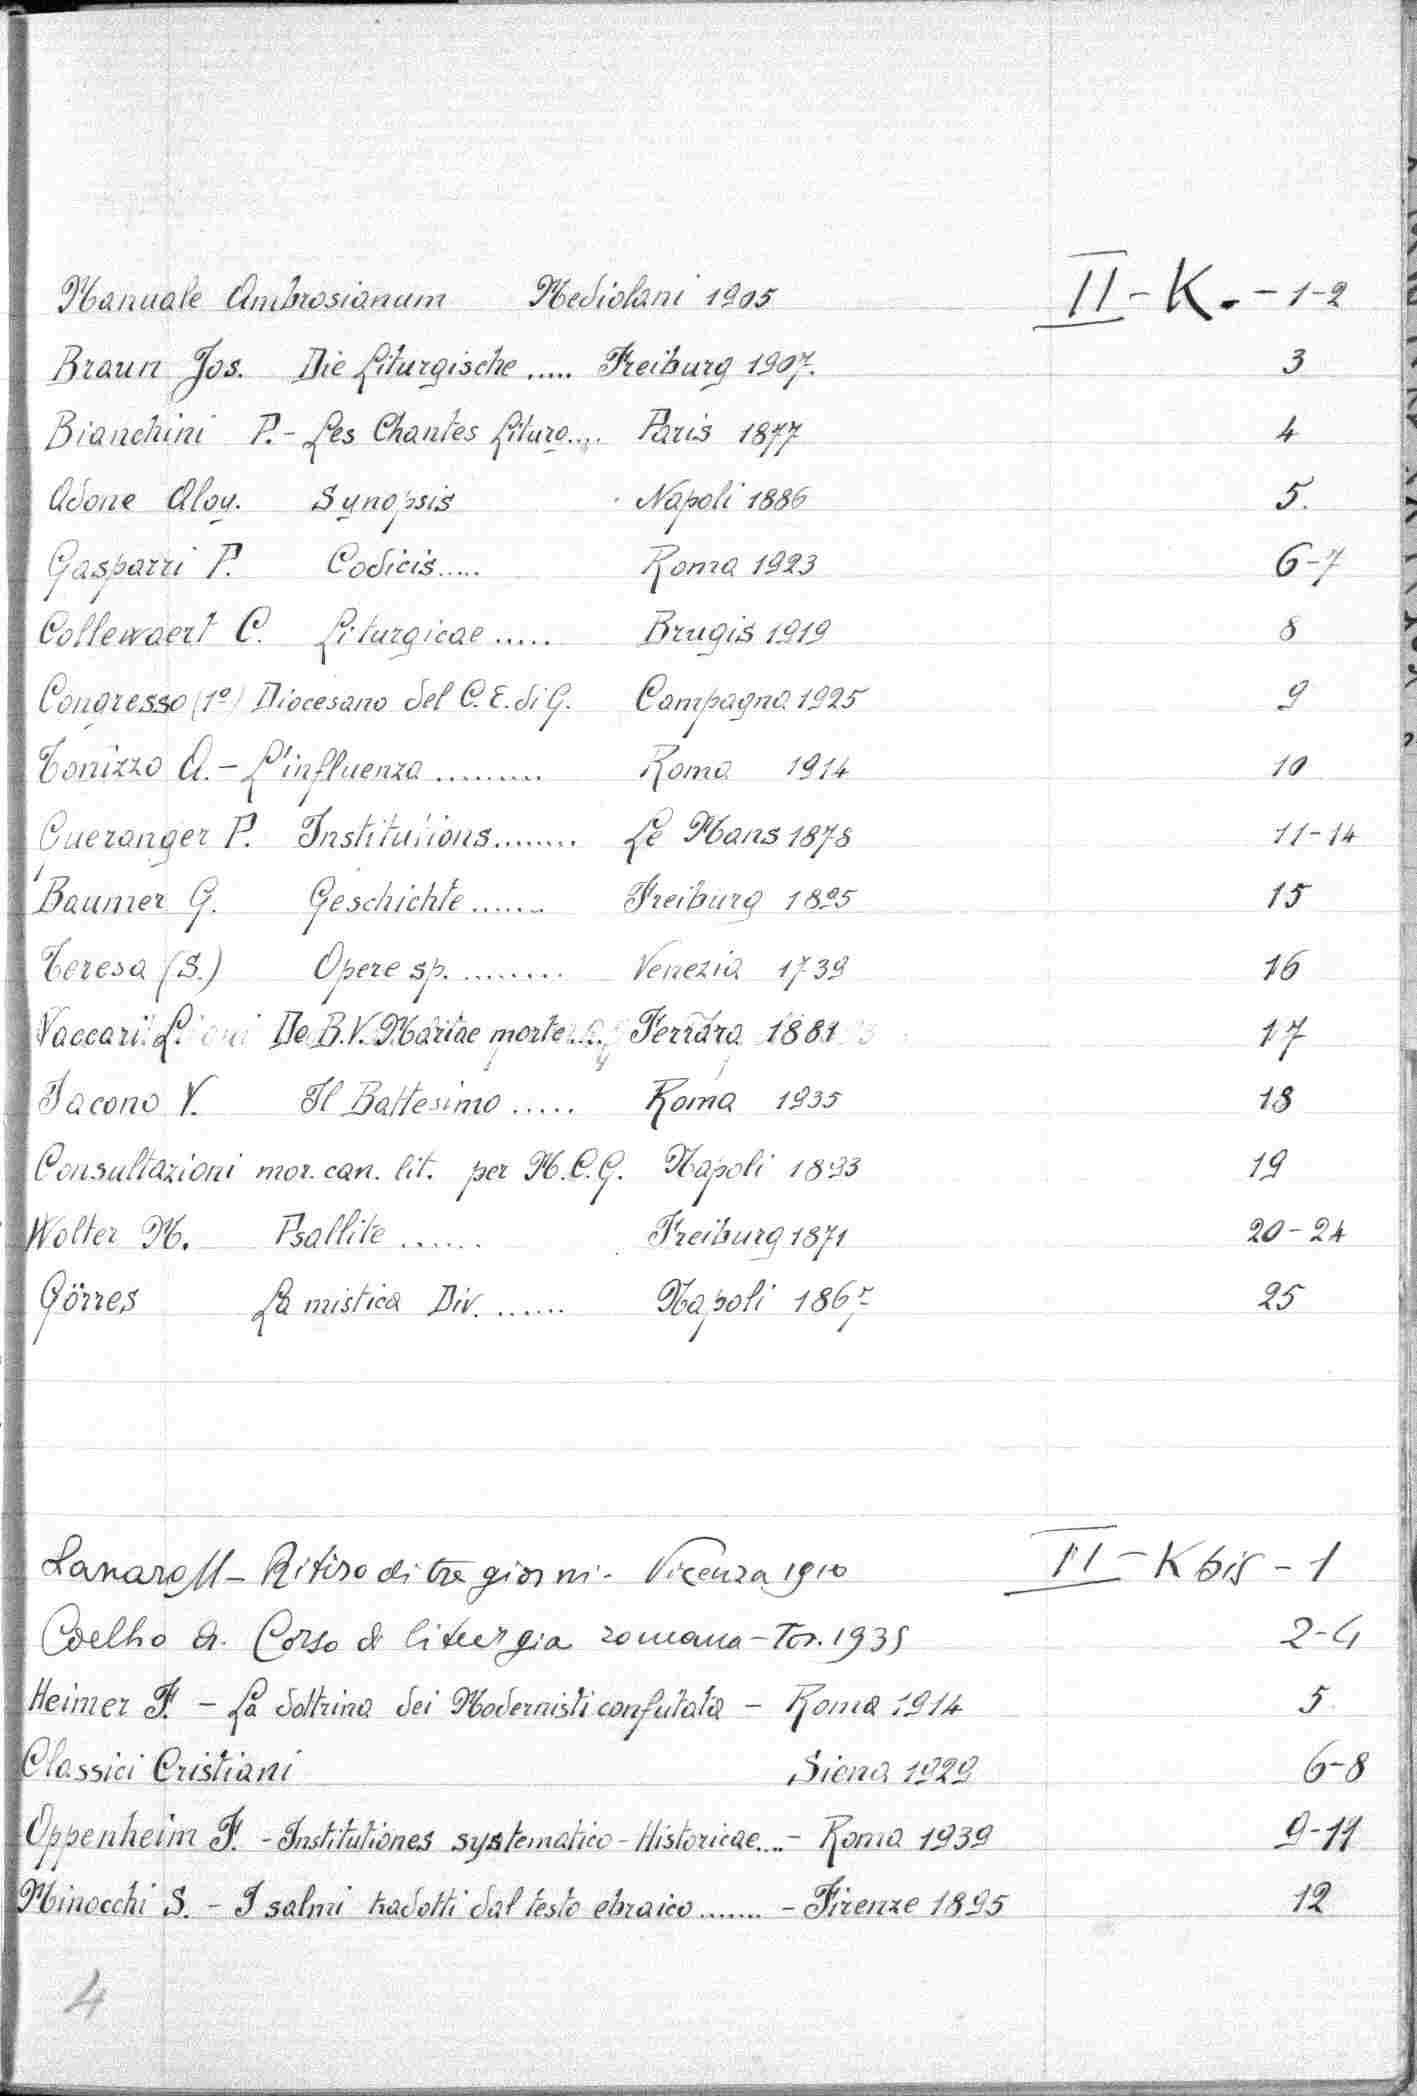 Manuale Ambrosianum Mediolani 1905 II - K. - 1-2
Braun Jos. Die Liturgische ..... Freiburg 1907. 3
Bianchini P. - Les Chantes Liturg.... Paris 1877 4
Adone Aloy. Synopsis Napoli 1886 5.
Gasparri P. Codicis..... Roma 1923 6-7
Collewaert C. Liturgicae ..... Brugis 1919 8
Congresso (1º) Diocesano del C. E. di G. Campagna 1925 9
Tonizzo A. - L'influenza ......... Roma 1914 10
Gueranger P. Institutions........ Le Mans 1878 11-14
Baumer G. Geschichte ...... Freiburg 1895 15
Teresa (S.) Opere sp. ........ Venezia 1739 16
Vaccari L. De B.V. Mariae morte.... Ferrara 1881 17
Iacono V. Il Battesimo ..... Roma 1935 18
Consultazioni mor. can. lit. per M.C.G. Napoli 1893 19
Wolter M. Psallite ...... Freiburg 1871 20-24
Görres La mistica Div. ...... Napoli 1867 25
Lanaro M - Ritiro di tre giorni - Vicenza 1910 II - K bis - 1
Coelho A. Corso di liturgia romana - Tor. 1935 2-4
Heimer F. - La dottrina dei Modernisti confutata - Roma 1914 5
Classici Cristiani Siena 1929 6-8
Oppenheim F. - Institutiones systematico - Historicae.... - Roma 1939 9-11
Minocchi S. - I salmi tradotti dal testo ebraico ....... - Firenze 1895 12
4